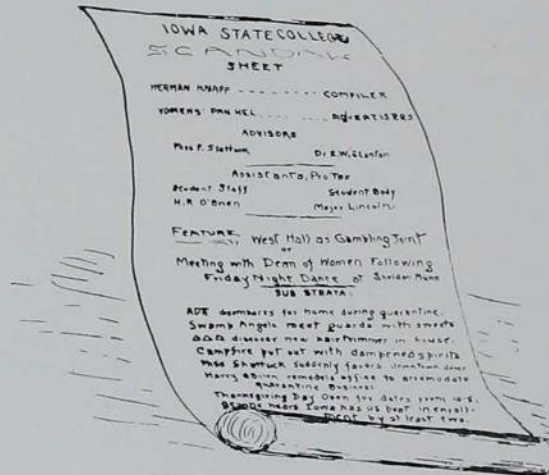 IOWA STATE COLLEGE
SCANDAL
SHEET
HERMAN KNAPP - - - - - - - - COMPILER
WOMENS' PAN HEL. . . . . . . . ADVERTISERS
ADVISORS
F. Shattuck Dr. E.W. Stanton
Assistants, Pro Tem
Student Staff Student Body
H.R. O'Brien Major Lincoln
FEATURE West Hall as Gambling Joint
or
Meeting with Dean of Women Following
Friday Night Dance at Sheldon Munn
SUB STRATA:
for home during quarantine.
Swamp Angels meet guards with sweets
ΔΔΔ discover new hairtrimmer in house.
Campfire put out with dampened spirits
Shattuck suddenly favors downtown
Harry O'Brien remodels office to accomodate
quarantine business
Thanksgiving Day Open for dates from 10-6.
hears Iowa has us beat in enroll-
ment by at least two.